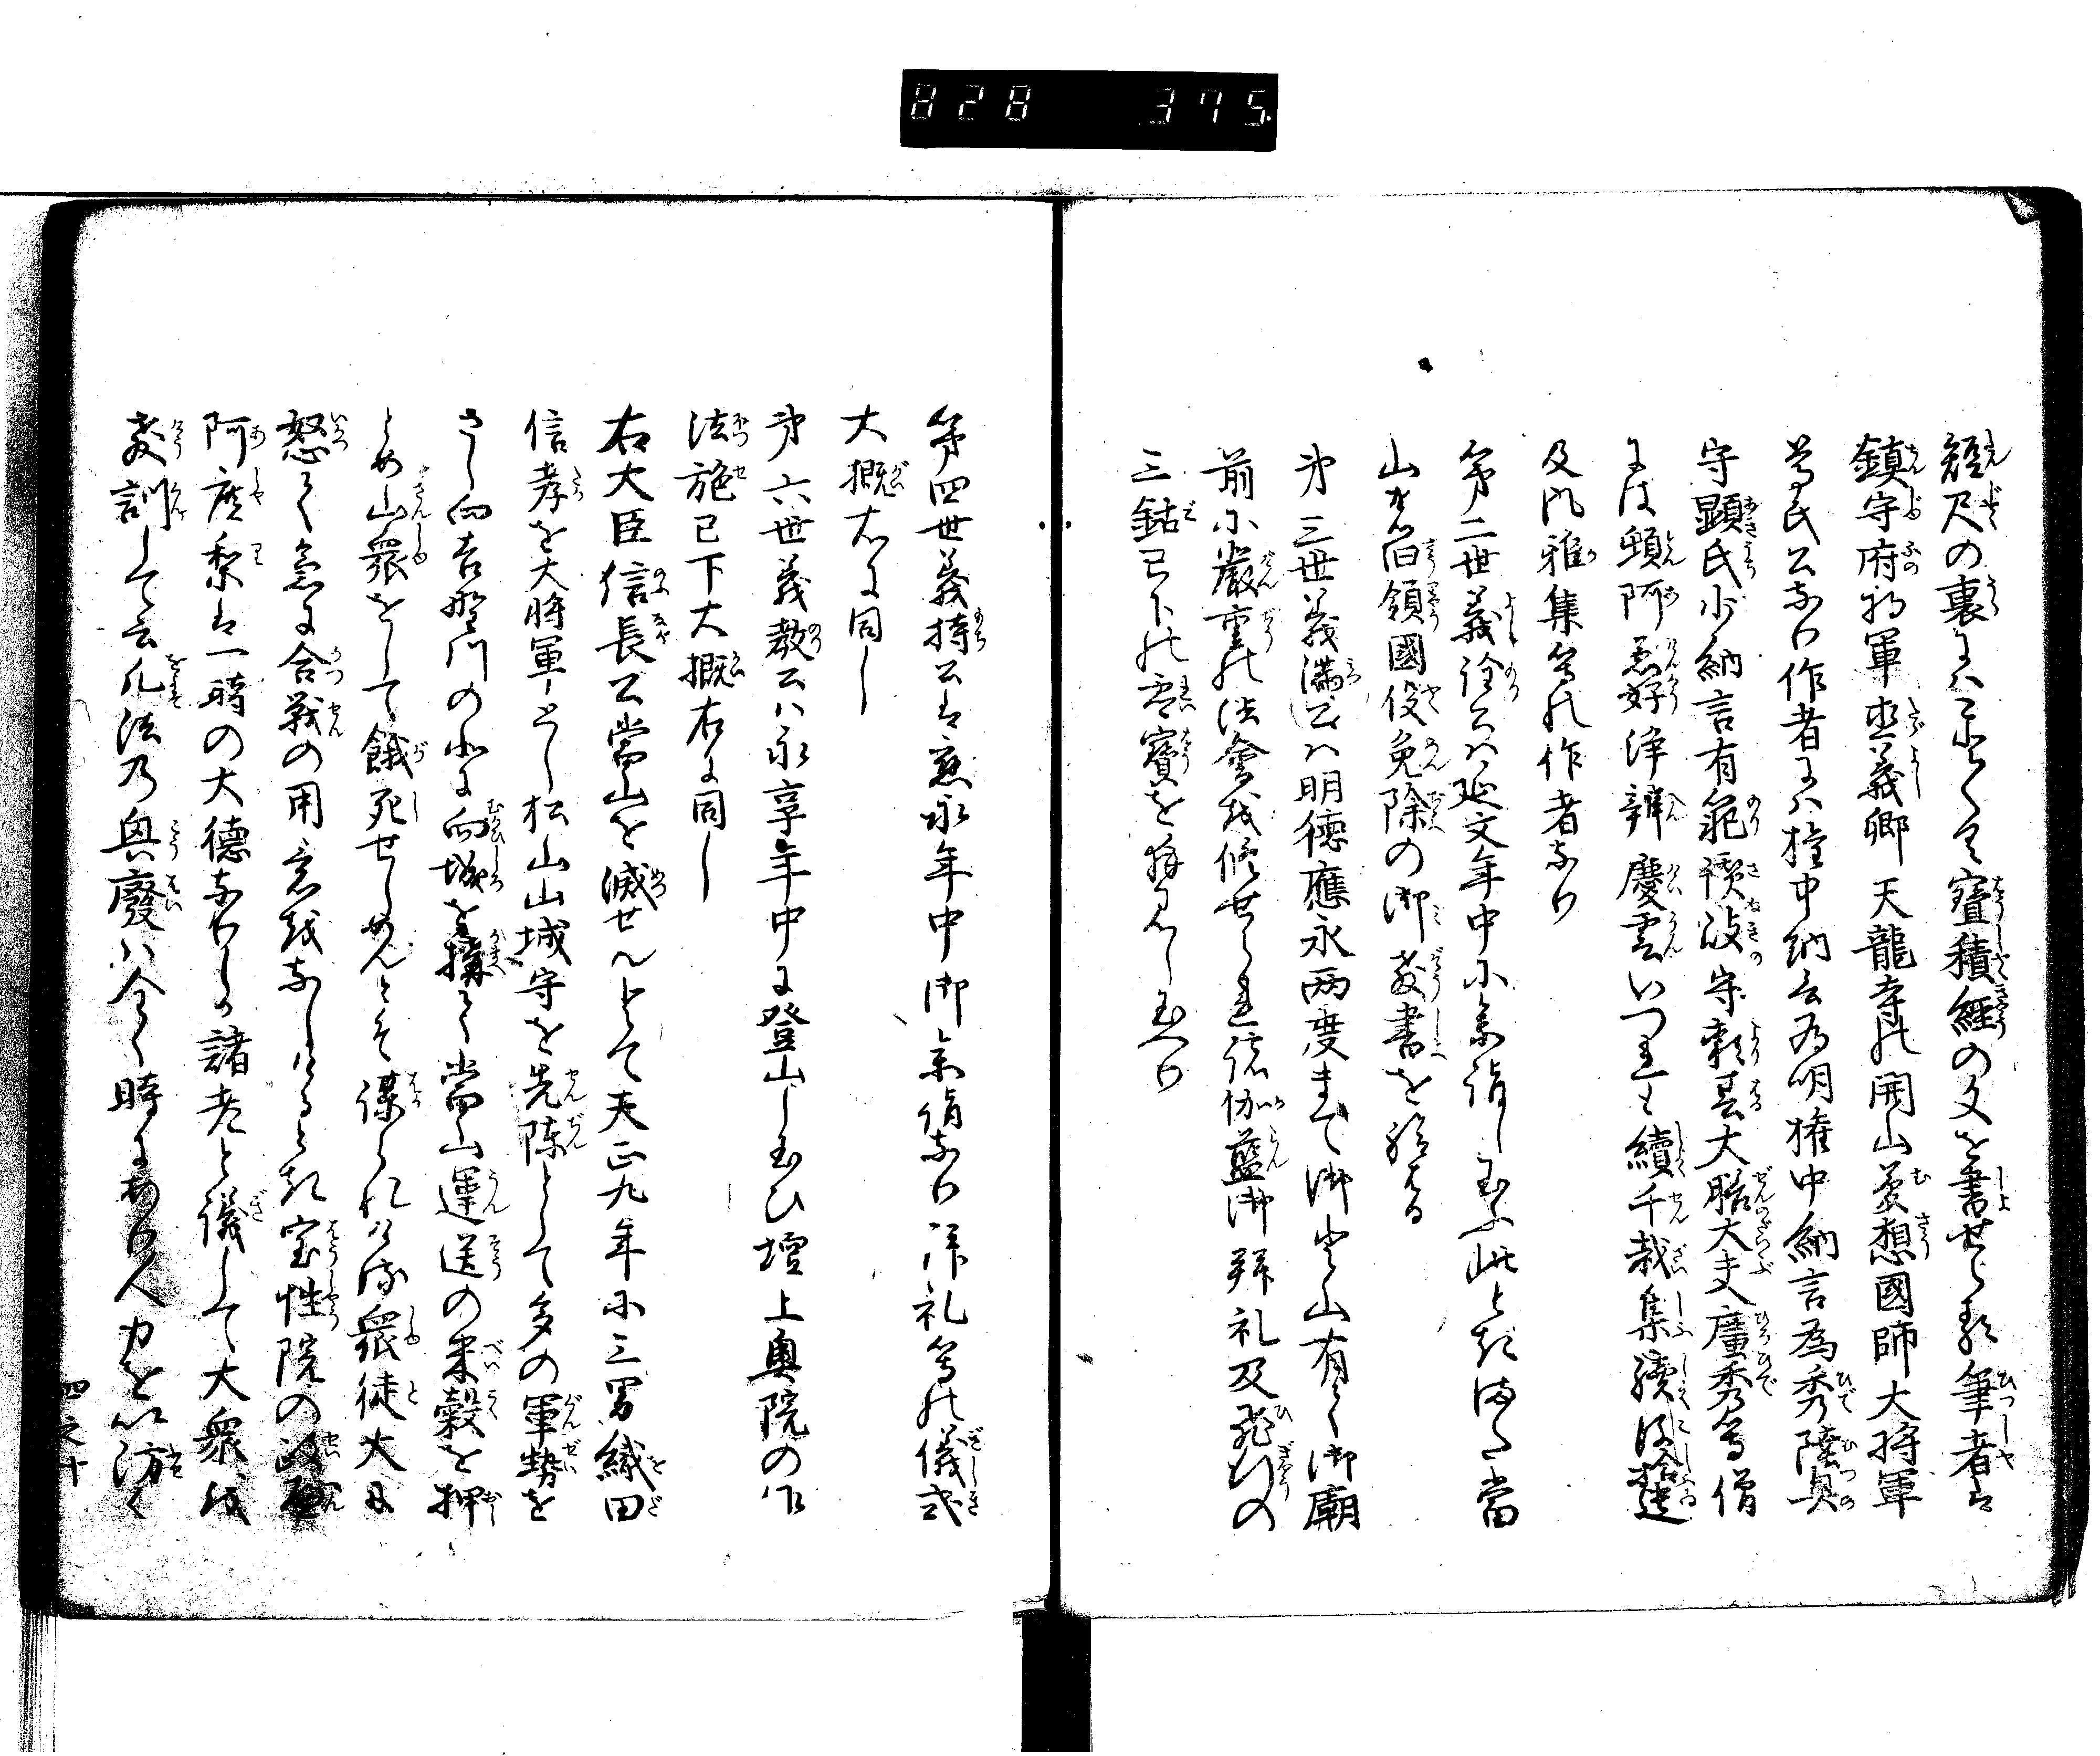 828 375
短尺の裏にハことく寶積經の文を書せらる筆者は
鎮守府将軍直義卿天龍寺の開山夢想國師大将軍
尊氏公なり作者にハ権中納言為明権中納言為秀陸奥
守顕氏少納言有範讃岐守頼春大膳大夫廣秀等僧
には頓阿兼好浄辨慶雲いつれも續千載集續後拾遺
及風雅集等の作者なり
第二世義詮公ハ延文年中に参詣し玉ふ此ときまた當
山の旧領國役免除の御教書を給はる
第三世義満公ハ明徳應永両度まて御登山有て御廟
前に嚴重の法會を修せられ諸伽藍御拜礼及飛行の
三鈷已下の霊寶を拜見し玉へり
第四世義持公は應永年中御参詣なり拜礼等の儀式
大概右に同し
第六世義教公ハ永享年中に登山し玉ひ壇上奥院の
法施已下大概右に同し
右大臣信長公當山を滅せんとて天正九年に三男織田
信孝を大将軍とし松山山城守を先陣として多の軍勢を
さし向吉野川の北に向城を搆て當山運送の米穀を押
とめ山衆をして餓死せしめんとそ謀られける衆徒大に
怒て急に合戦の用意をなしけるとき宝性院の政遍
阿庾梨は一時の大徳なりしか諸老と議して大衆を
教訓して云凡法の興廢ハ全く時にあり人力を以防く
四之十